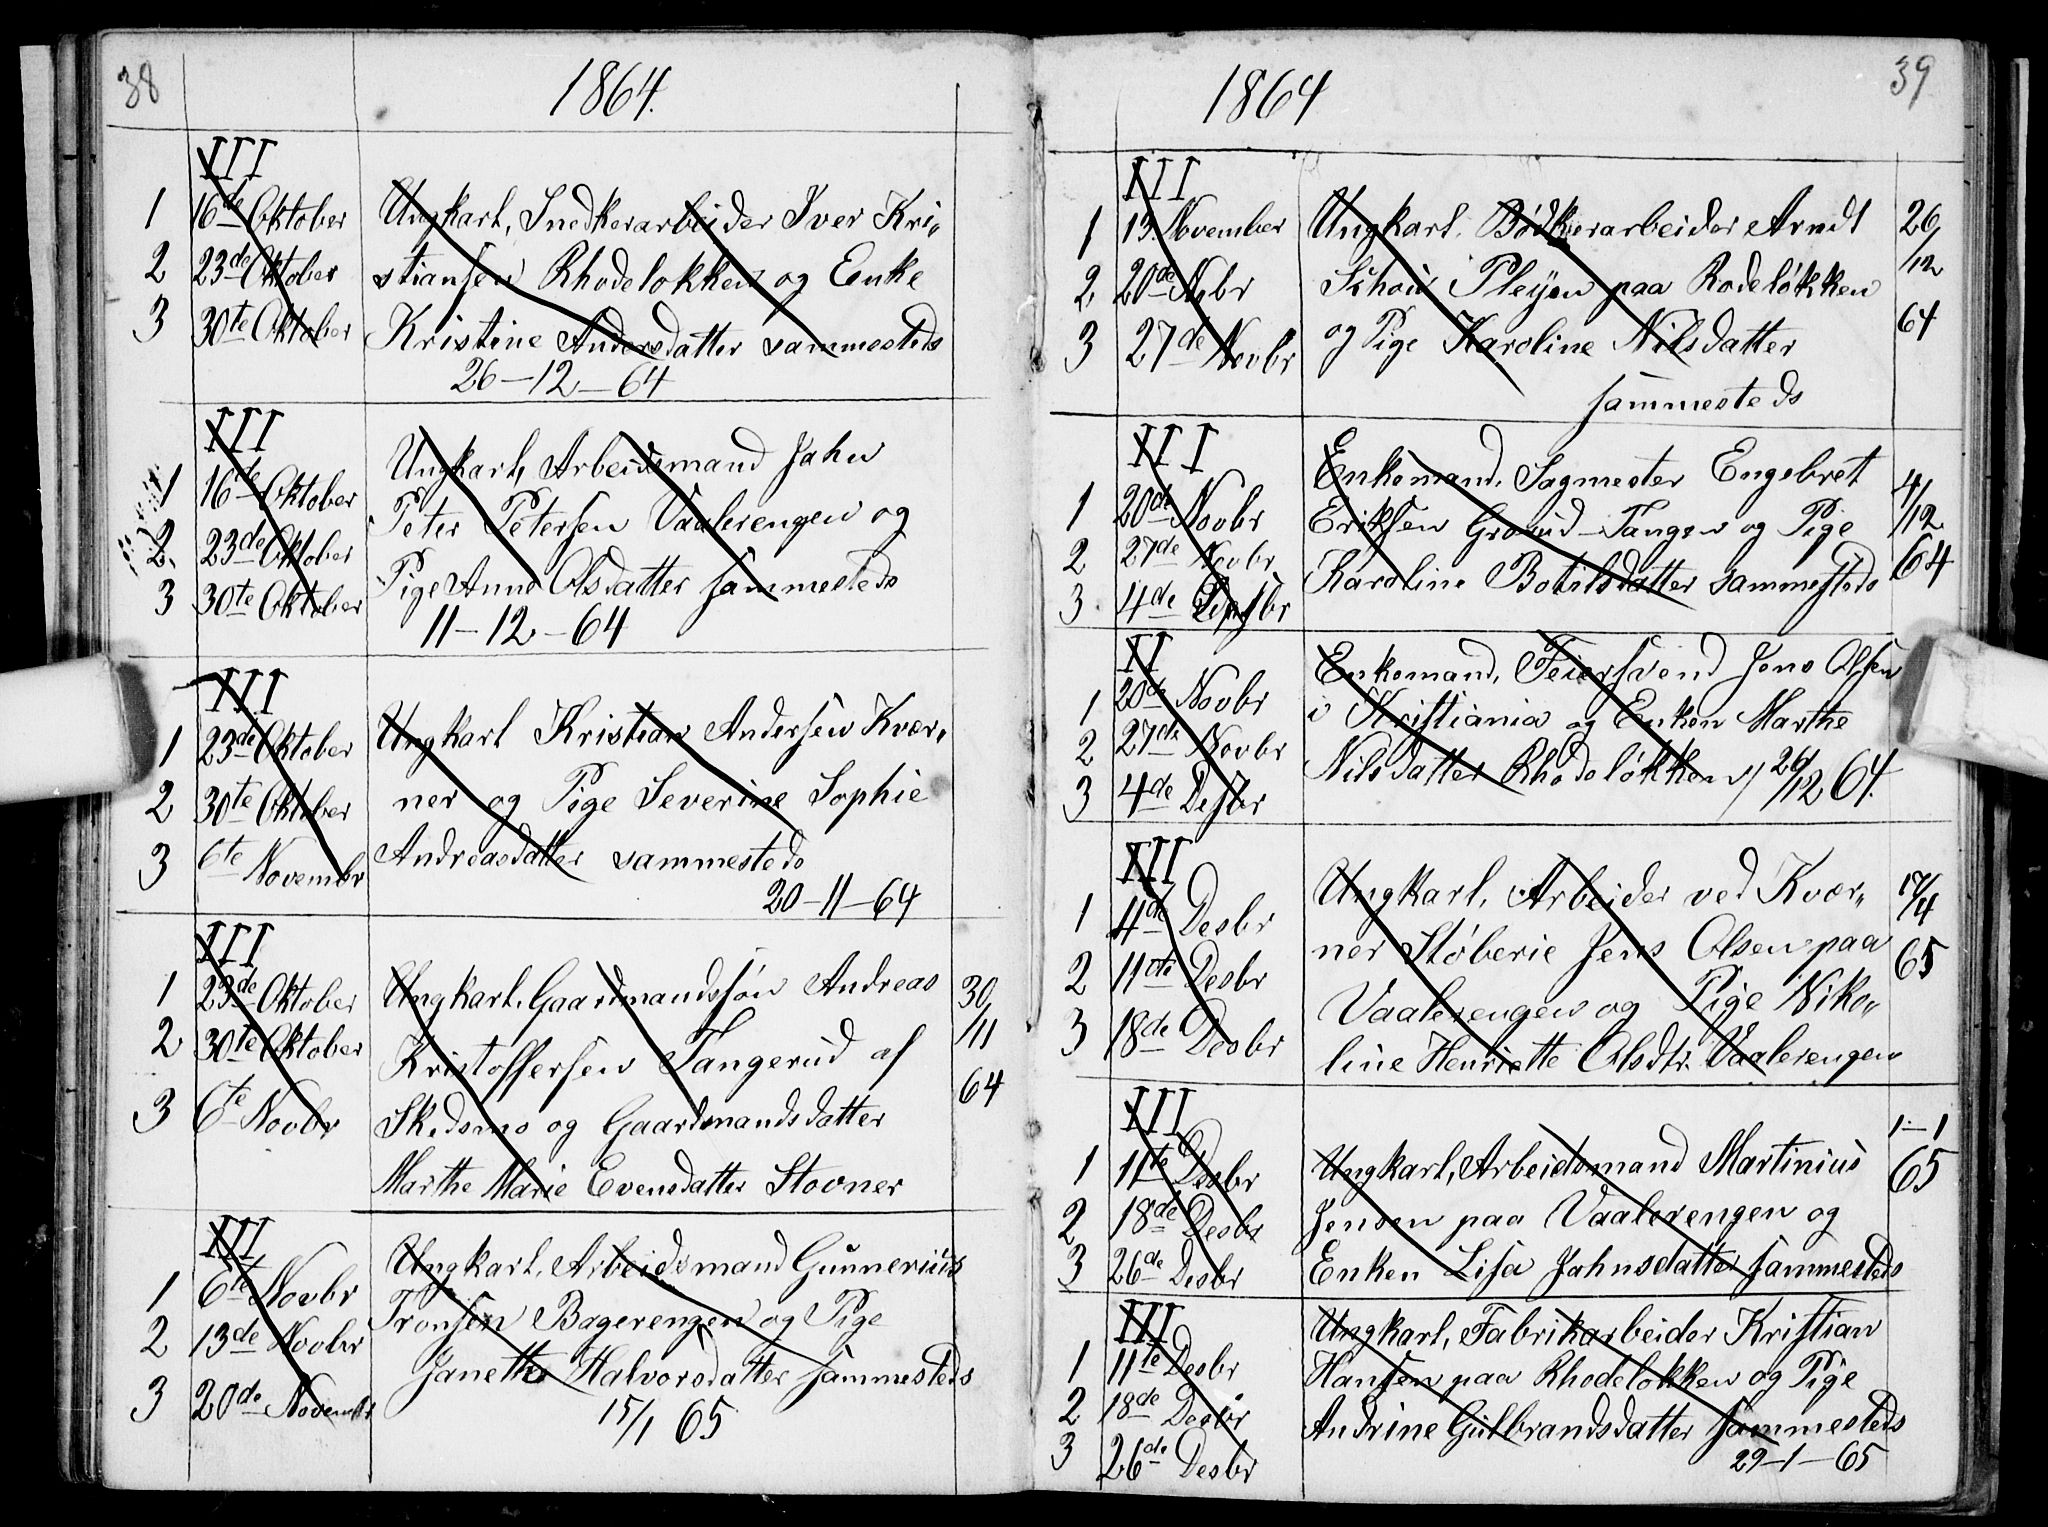 38
1864.
III
1 16de Oktober Ungkarl, Snedkerarbeider Iver Kri„
2 23de Oktober stiansen Rhodeløkken og Enke
3 30te Oktober Kristine Andersdatter sammesteds
26-12-64
III
1 16de Oktober Ungkarl, Arbeidsmand Jahn
2 23de Oktober Peter Petersen Vaalerengen og
3 30te Oktober Pige Anne Olsdatter sammesteds
11-12-64
III
1 23de Oktober Ungkarl Kristian Andersen Kvær„
2 30te Oktober ner og Pige Severine Sophie
3 6te Novembr Andreasdatter sammesteds
20-11-64
III
1 23de Oktober Ungkarl, Gaardmandssøn Andreas 30/
2 30te Oktober Kristoffersen Tangerud af /11
3 6te Novbr Skedsmo og Gaardmandsdatter 64
Marthe Marie Evensdatter Stovner
III
1 6te Novbr Ungkarl, Arbeidsmand Gunnerius
2 13de Novbr Tronsen Bagerengen og Pige
3 20de Novembr Janette Halvorsdatter sammesteds
15/1 65
39
1864
III
1 13. November Ungkarl, Bødkerarbeider Arndt 26/
2 20de Nvbr Schou Pleyen paa Rodeløkken /12
3 27de Novbr og Pige Karoline Nilsdatter 64
sammesteds
III
Enkemand, Sagmester Engebret 4/
1 20de Novbr Eriksen Grorud-Tangen og Pige /12
2 27de Novbr Karoline Botilsdatter sammesteds 64
3 4de Desbr
II
1 20de Novbr Enkemand, Feiersvend Jens Olsen
2 27de Novbr i Kristiania og Enken Marthe
3 4de Desbr Nilsdatter Rhodeløkken 26/12 64.
III
1 4de Desbr Ungkarl, Arbeider ved Kvær„ 17/4
2 11de Desbr ner Støberie Jens Olsen paa 65
3 18de Desbr Vaalerengen og Pige Niko„
line Henriette Olsdtr. Vaalerengen
III
1-1
1 11te Desbr Ungkarl, Arbeidsmand Martinius 65
2 18de Desbr Jensen paa Vaalerengen og
3 26de Desbr Enken Lisa Jahnsdatter sammesteds
III
Ungkarl, Fabrikarbeider Kristian
1 11te Desbr Hansen paa Rhodeløkken og Pige
2 18de Desbr Andrine Gulbrandsdatter sammesteds
3 26de Desbr 29-1-65